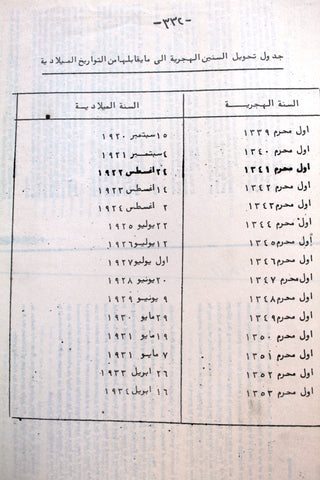 -٣٣٤-
جدول تحويل السنين الهجرية الى مايقابلها من التواريخ الميلادية
السنة الهجرية السنة الميلادية
اول محرم ١٣٣٩ ١٥ سبتمبر ١٩٢٠
اول محرم ١٣٤٠ ٤ سبتمبر ١٩٢١
اول محرم ١٣٤١ ٢٤ اغسطس ١٩٢٢
اول محرم ١٣٤٢ ١٤ اغسطس ١٩٢٣
اول محرم ١٣٤٣ ٢ اغسطس ١٩٢٤
اول محرم ١٣٤٤ ٢٢ يوليو ١٩٢٥
اول محرم ١٣٤٥ ١٢ يوليو ١٩٢٦
اول محرم ١٣٤٦ اول يوليو ١٩٢٧
اول محرم ١٣٤٧ ٢٠ يونيو ١٩٢٨
اول محرم ١٣٤٨ ٩ يونيو ١٩٢٩
اول محرم ١٣٤٩ ٢٩ مايو ١٩٣٠
اول محرم ١٣٥٠ ١٩ مايو ١٩٣١
اول محرم ١٣٥١ ٧ مايو ١٩٣١
اول محرم ١٣٥٢ ٢٦ ابريل ١٩٣٣
اول محرم ١٣٥٣ ١٦ ابريل ١٩٣٤